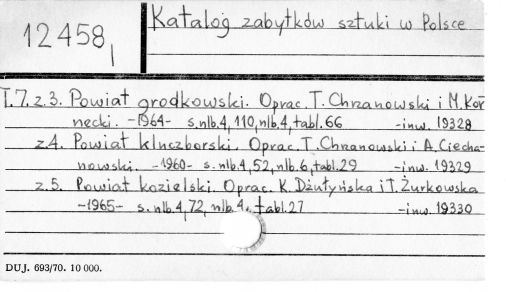 12458 I
Katalog zabytków sztuki w Polsce
T.7. z.3. Powiat grodkowski. Oprac. T. Chrzanowski i M. Kor-
necki. -1964- s. nlb. 4, 110, nlb. 4, tabl. 66 -inw. 19328
z.4. Powiat kluczborski. Oprac. T. Chrzanowski i A. Ciecha-
nowski. -1960- s. nlb. 4, 52, nlb. 6, tabl. 29 -inw. 19329
z.5. Powiat kozielski. Oprac. K. Dżułyńska i T. Żurkowska
-1965- s. nlb. 4, 72, nlb. 4, tabl. 27 -inw. 19330
DUJ. 693/70. 10 000.